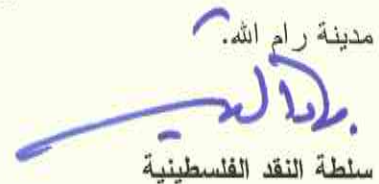 مدينة رام الله.
سلطة النقد الفلسطينية